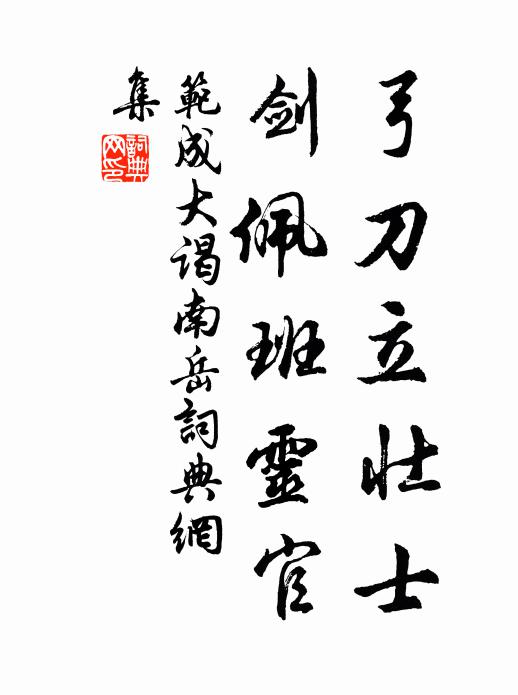 弓刀立壯士
劍佩班靈官
範成大謁南岳詞典網
集
詞典
网印